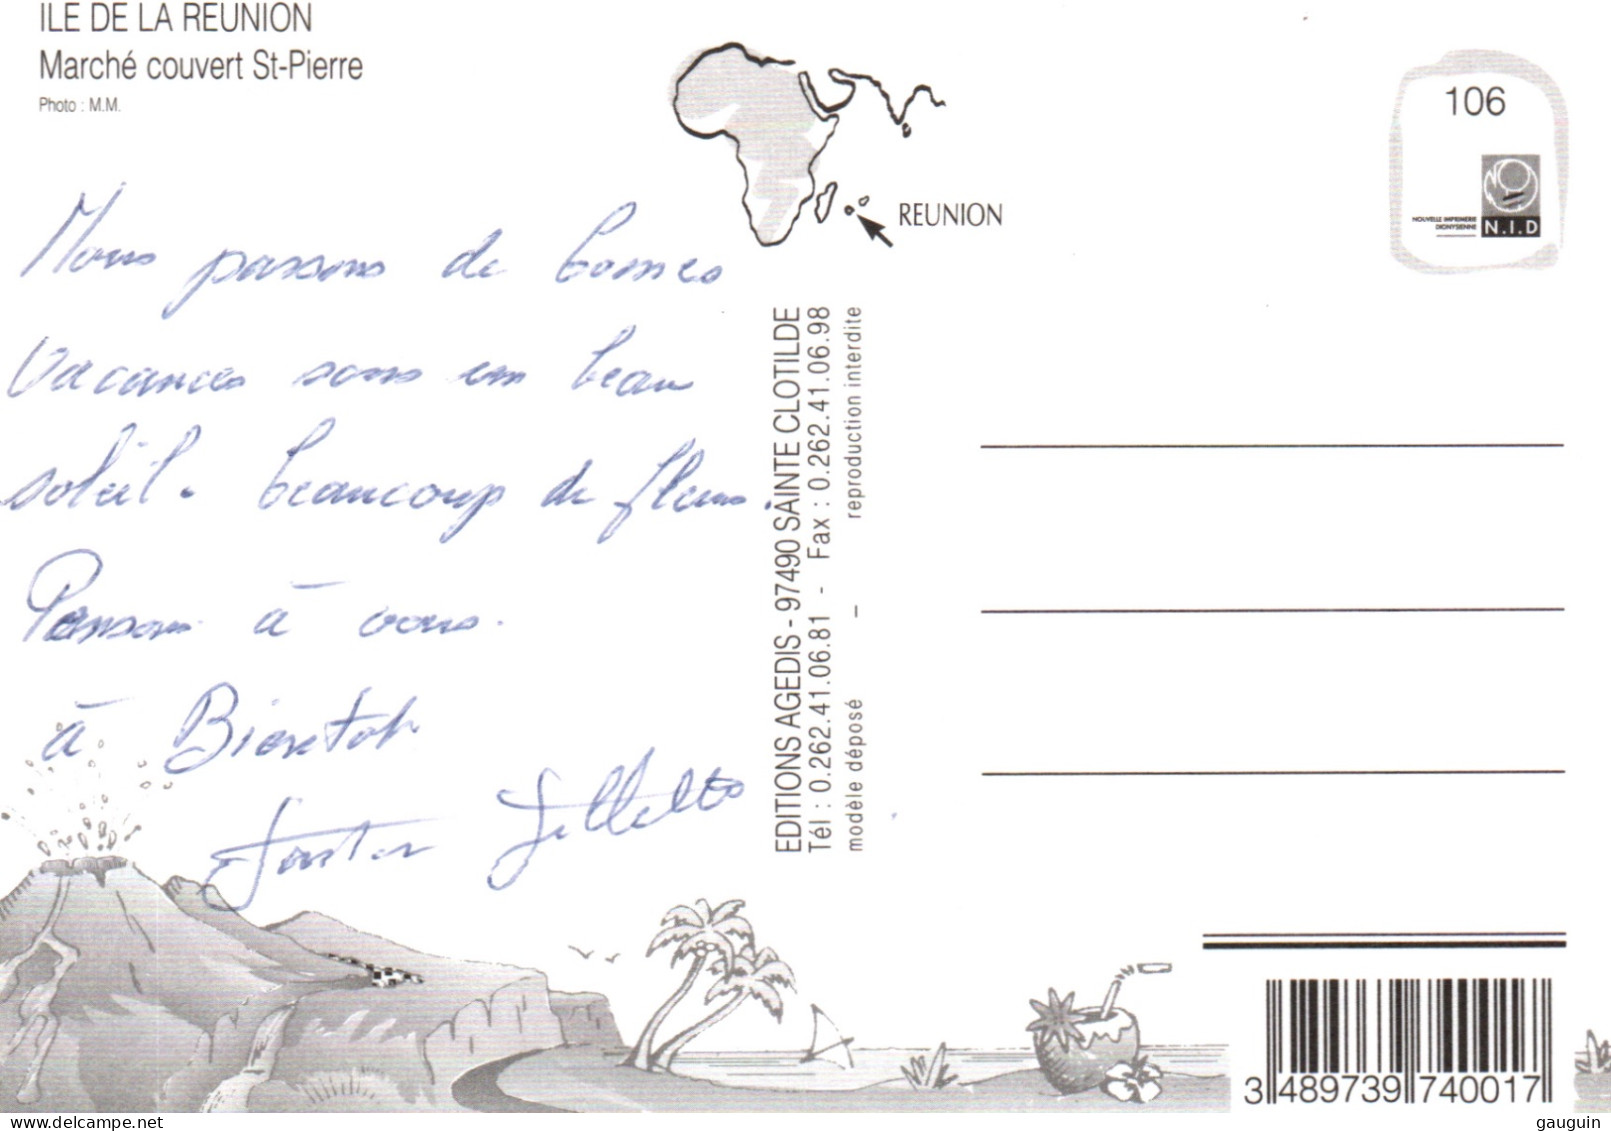 ILE DE LA REUNION
Marché couvert St-Pierre
Photo : M.M.
106
NOUVELLE IMPRIMERIE
DIONYSIENNE
N.I.D
REUNION
Nous passons de bonnes
vacances sous un beau
soleil. beaucoup de fleurs.
Pensons à vous.
à Bientôt
EDITIONS AGEDIS - 97490 SAINTE CLOTILDE
Tél : 0.262.41.06.81 - Fax : 0.262.41.06.98
modèle déposé – reproduction interdite
3 489739 740017
gauguin